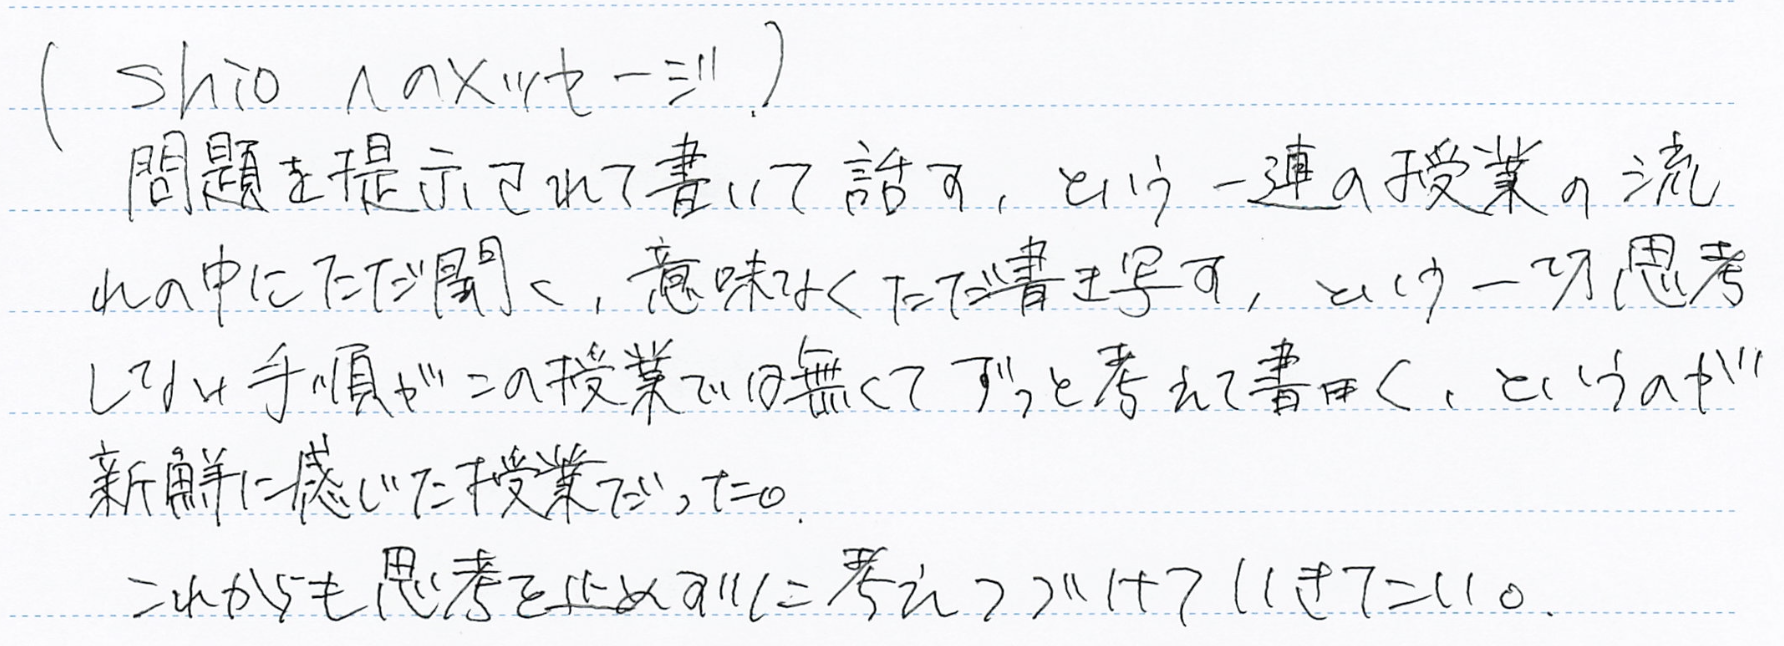 (shioへのメッセージ)
問題を提示されて書いて話す、という一連の授業の流
れの中にただ聞く、意味なくただ書き写す、という一切思考
しない手順がこの授業では無くてずっと考えて書く、というのが
新鮮に感じた授業だった。
これからも思考を止めずに考えつづけていきたい。